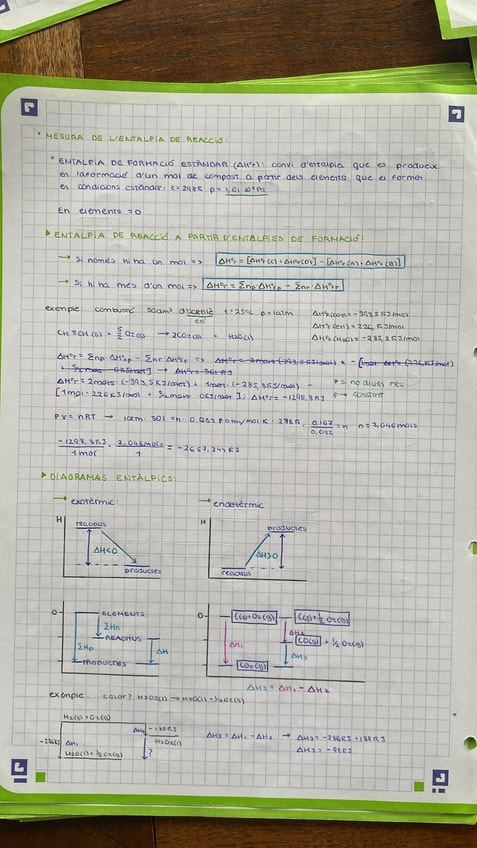 * MESURA DE L'ENTALPIA DE REACCIÓ
* ENTALPIA DE FORMACIÓ ESTÀNDAR (ΔH°f): canvi d'entalpia que es produeix
en la formació d'un mol de compost a partir dels elements que el formen
en condicions estàndar: t=298K p=1,01·10⁵Pa
En elements =0
▶ ENTALPIA DE REACCIÓ A PARTIR D'ENTALPIES DE FORMACIÓ:
→ Si només hi ha un mol => ΔH°r = [ΔH°f(C) + ΔH°f(D)] - [ΔH°f(A) + ΔH°f(B)]
→ Si hi ha més d'un mol => ΔH°r = Σnp · ΔH°fp - Σnr · ΔH°fr
exemple: combustió 50dm³ d'acetilè t=25ºC p=1atm
ΔH°f(CO2) = -393,5 KJ/mol
ΔH°f(etí) = 226, KJ/mol
ΔH°f(H2O) = -285,8 KJ/mol
CH≡CH(g) + 5/2 O2(g) → 2CO2(g) + H2O(l)
ΔH°r = Σnp · ΔH°fp - Σnr · ΔH°fr =>
ΔH°r = 2mols · (-393,5KJ/mol) + 1mol · (-285,8KJ/mol) -
[1mol · 226KJ/mol + 5/2mols · 0KJ/mol]; ΔH°r = -1298,8KJ
P → constant
PV = nRT → 1atm · 50l = n · 0,082
n = 2,046mols
-1298,8KJ / 1mol · 2,046mols / 1 = -2657,344KJ
▶ DIAGRAMAS ENTÀLPICS:
→ exotèrmic: → endotèrmic
H reactius ΔH<0 productes
H productes ΔH>0 reactius
0 ELEMENTS ΣHR REACTIUS ΣHp ΔH PRODUCTES
0 C(s)+O2(g) C(s)+½O2(g) ΔH2 CO(g) + ½ O2(g) ΔH1 ΔH3 CO2(g)
ΔH3 = ΔH1 - ΔH2
exemple: calor? H2O2(l) → H2O(l) + ½O2(g)
H2(g) + O2(g)
ΔH2 -188KJ
H2O2(l)
-286KJ ΔH1 ?
H2O(l) + ½ O2(g)
ΔH3 = ΔH1 - ΔH2 → ΔH3 = -286KJ + 188KJ
ΔH3 = -98KJ